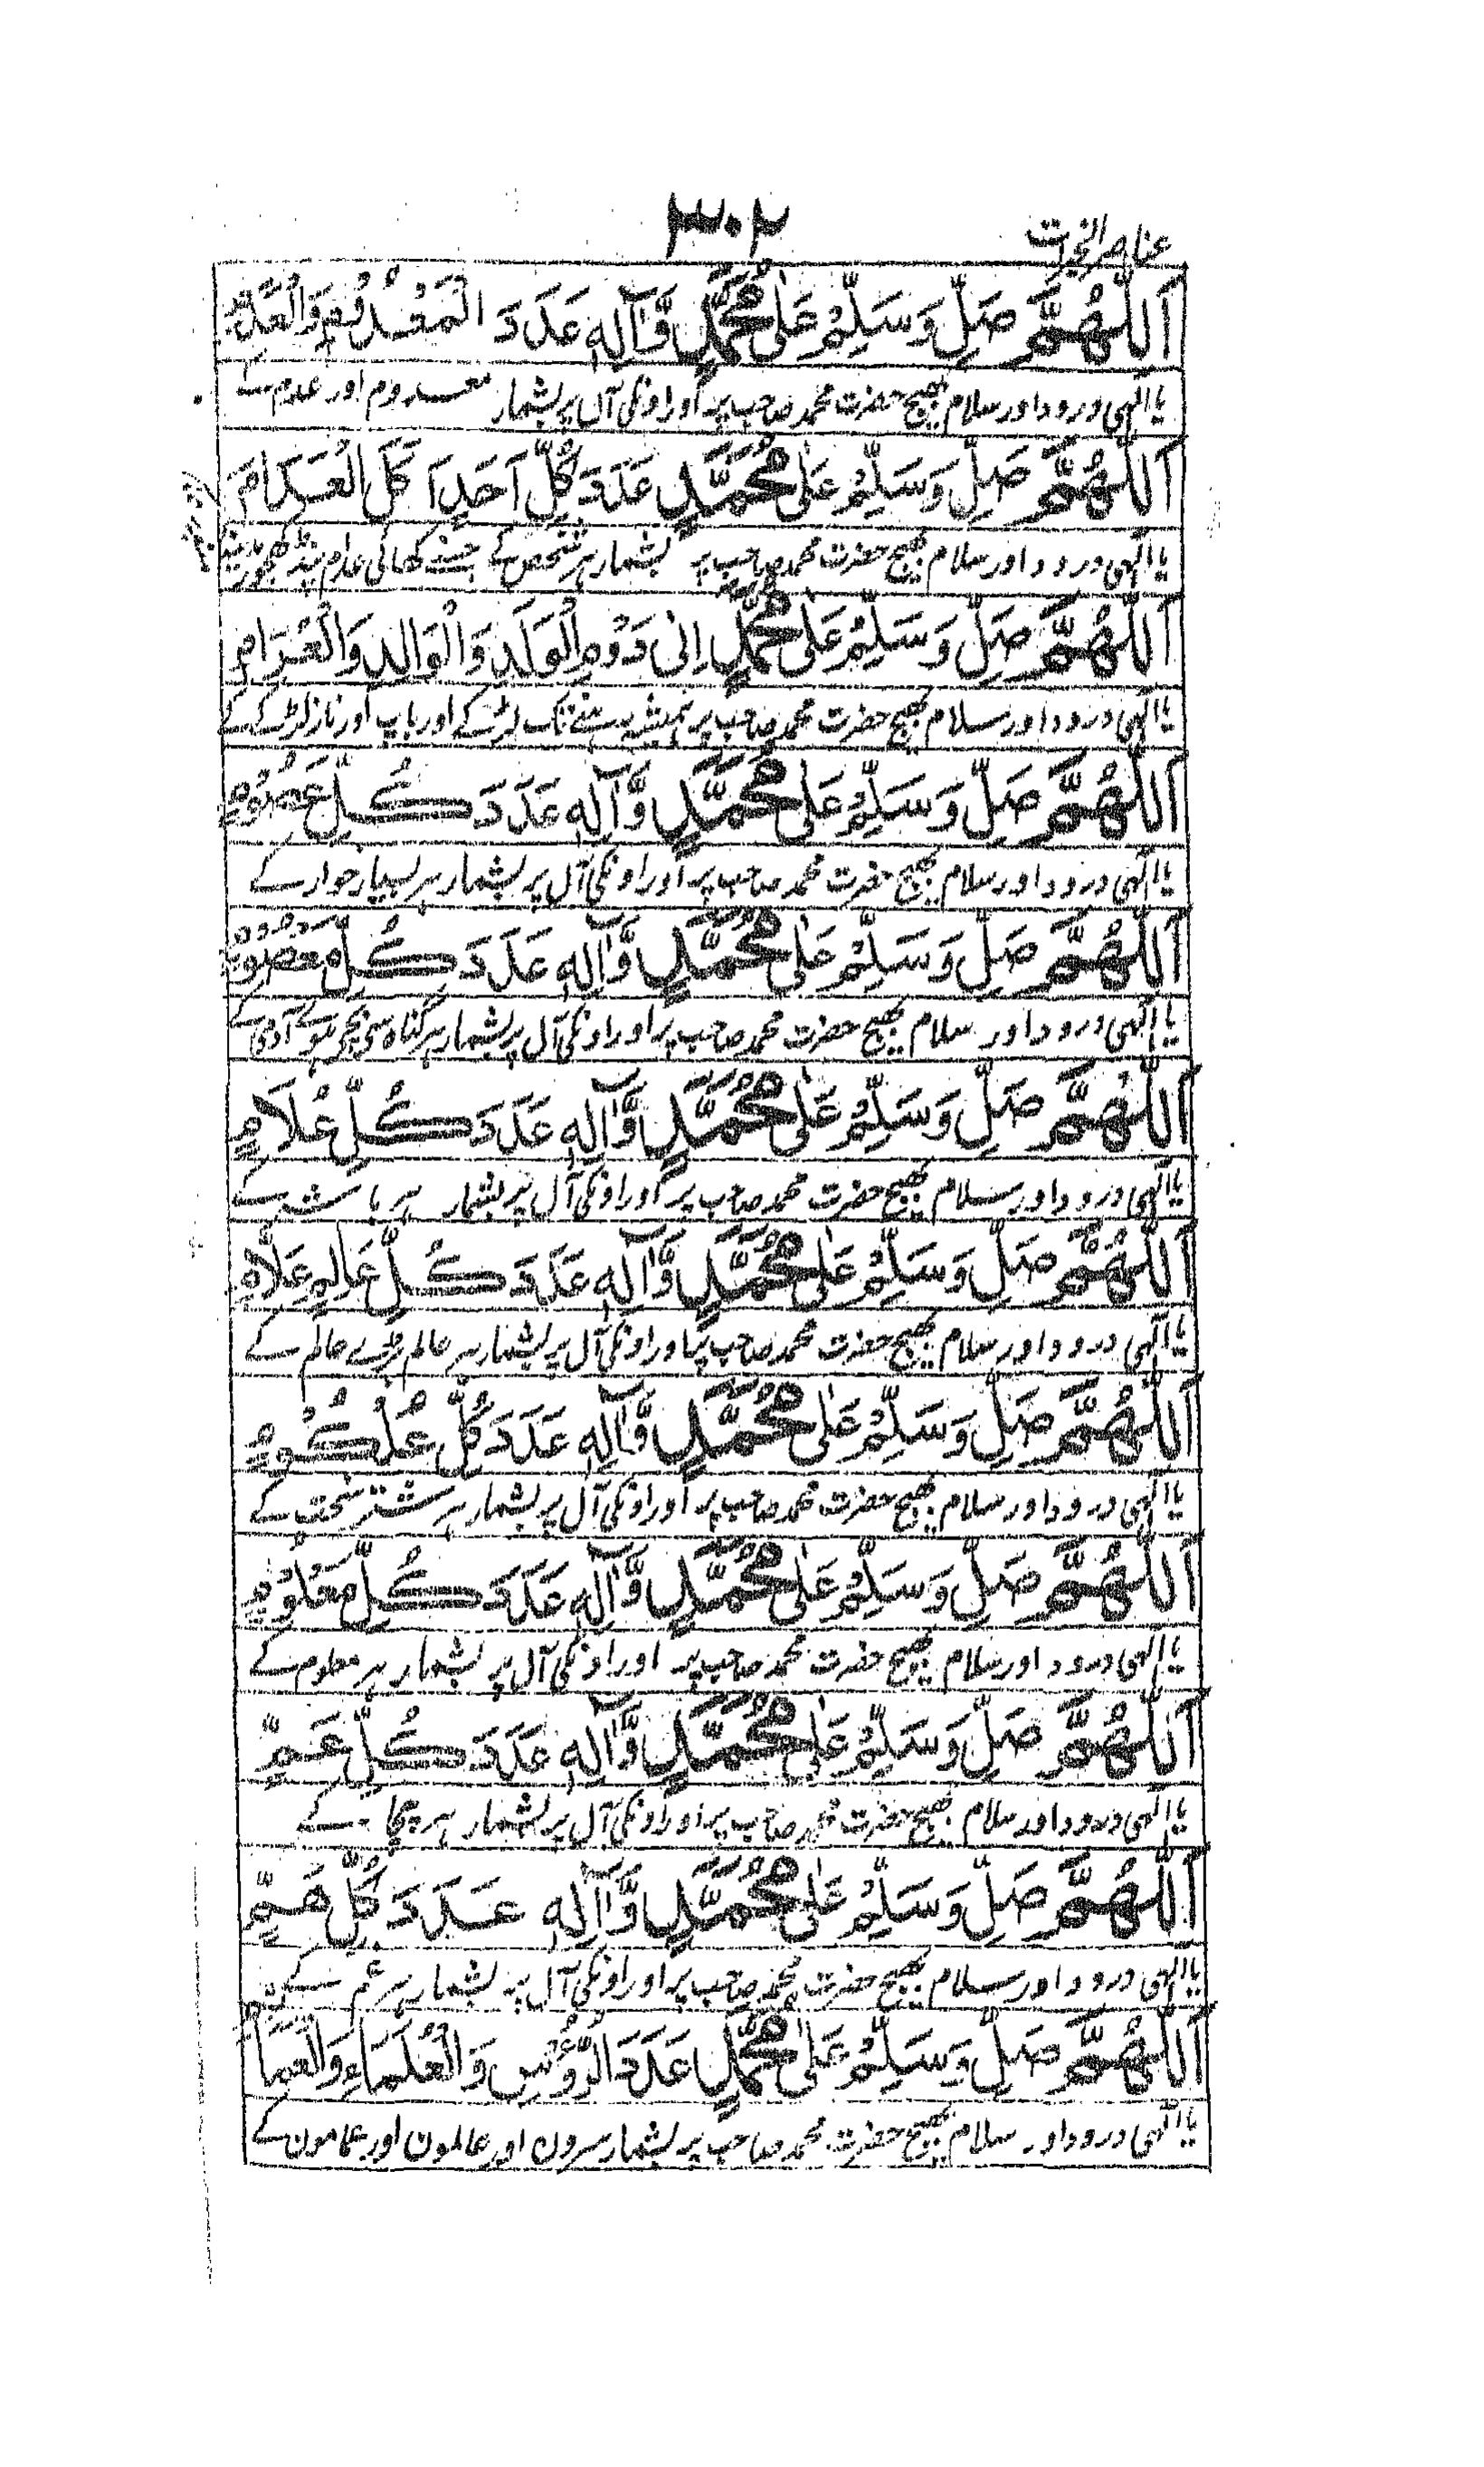 ۳۰۲
عناصر الخیرات
اَللّٰهُمَّ صَلِّ وَسَلِّمْ عَلٰی مُحَمَّدٍ وَّاٰلِهٖ عَدَدَ الْمَعْدُوْمِ وَالْعَدَمِ
یا الٰہی درود اور سلام بھیج حضرت محمد صاحب پر اور اونکی آل پر بشمار معدوم اور عدم کے
اَللّٰهُمَّ صَلِّ وَسَلِّمْ عَلٰی مُحَمَّدٍ عَدَدَ كُلِّ اَحَدٍ اَكَلَ الْعُدَامَ
یا الٰہی درود اور سلام بھیج حضرت محمد صاحب پر بشمار ہر شخص کے جسنے کھائی عدام
اَللّٰهُمَّ صَلِّ وَسَلِّمْ عَلٰی مُحَمَّدٍ اِلٰی دَوْمِ الْوَلَدِ وَالْوَالِدِ وَالْعُرَامِ
یا الٰہی درود اور سلام بھیج حضرت محمد صاحب پر ہمیش رہنے تک لڑکے اور باپ اور لڑکے کے
اَللّٰهُمَّ صَلِّ وَسَلِّمْ عَلٰی مُحَمَّدٍ وَّاٰلِهٖ عَدَدَ كُلِّ عَصُوْمٍ
یا الٰہی درود اور سلام بھیج حضرت محمد صاحب پر اور اونکی آل پر بشمار ہر بسیار خوار کے
اَللّٰهُمَّ صَلِّ وَسَلِّمْ عَلٰی مُحَمَّدٍ وَّاٰلِهٖ عَدَدَ كُلِّ مَعْصُوْمٍ
یا الٰہی درود اور سلام بھیج حضرت محمد صاحب پر اور اونکی آل پر بشمار ہر گناہ سی بچے ہوے آدمی کے
اَللّٰهُمَّ صَلِّ وَسَلِّمْ عَلٰی مُحَمَّدٍ وَّاٰلِهٖ عَدَدَ كُلِّ عُلَامٍ
یا الٰہی درود اور سلام بھیج حضرت محمد صاحب پر اور اونکی آل پر بشمار ہر باشہ کے
اَللّٰهُمَّ صَلِّ وَسَلِّمْ عَلٰی مُحَمَّدٍ وَّاٰلِهٖ عَدَدَ كُلِّ عَالِمٍ عَلَّامٍ
یا الٰہی درود اور سلام بھیج حضرت محمد صاحب پر اور اونکی آل پر بشمار ہر عالم بڑے عالم کے
اَللّٰهُمَّ صَلِّ وَسَلِّمْ عَلٰی مُحَمَّدٍ وَّاٰلِهٖ عَدَدَ كُلِّ عُلْكُوْمٍ
یا الٰہی درود اور سلام بھیج حضرت محمد صاحب پر اور اونکی آل پر بشمار ہر شتر سخت کے
اَللّٰهُمَّ صَلِّ وَسَلِّمْ عَلٰی مُحَمَّدٍ وَّاٰلِهٖ عَدَدَ كُلِّ مَعْلُوْمٍ
یا الٰہی درود اور سلام بھیج حضرت محمد صاحب پر اور اونکی آل پر بشمار ہر معلوم کے
اَللّٰهُمَّ صَلِّ وَسَلِّمْ عَلٰی مُحَمَّدٍ وَّاٰلِهٖ عَدَدَ كُلِّ عَمٍّ
یا الٰہی درود اور سلام بھیج حضرت محمد صاحب پر اور اونکی آل پر بشمار ہر چچا کے
اَللّٰهُمَّ صَلِّ وَسَلِّمْ عَلٰی مُحَمَّدٍ وَّاٰلِهٖ عَدَدَ كُلِّ هَمٍّ
یا الٰہی درود اور سلام بھیج حضرت محمد صاحب پر اور اونکی آل پر بشمار ہر غم کے
اَللّٰهُمَّ صَلِّ وَسَلِّمْ عَلٰی مُحَمَّدٍ عَدَدَ الرُّؤُسِ وَالْعُلَمَاءِ وَالْعَمَائِمِ
یا الٰہی درود اور سلام بھیج حضرت محمد صاحب پر بشمار سرون اور عالمون اور عمامون کے